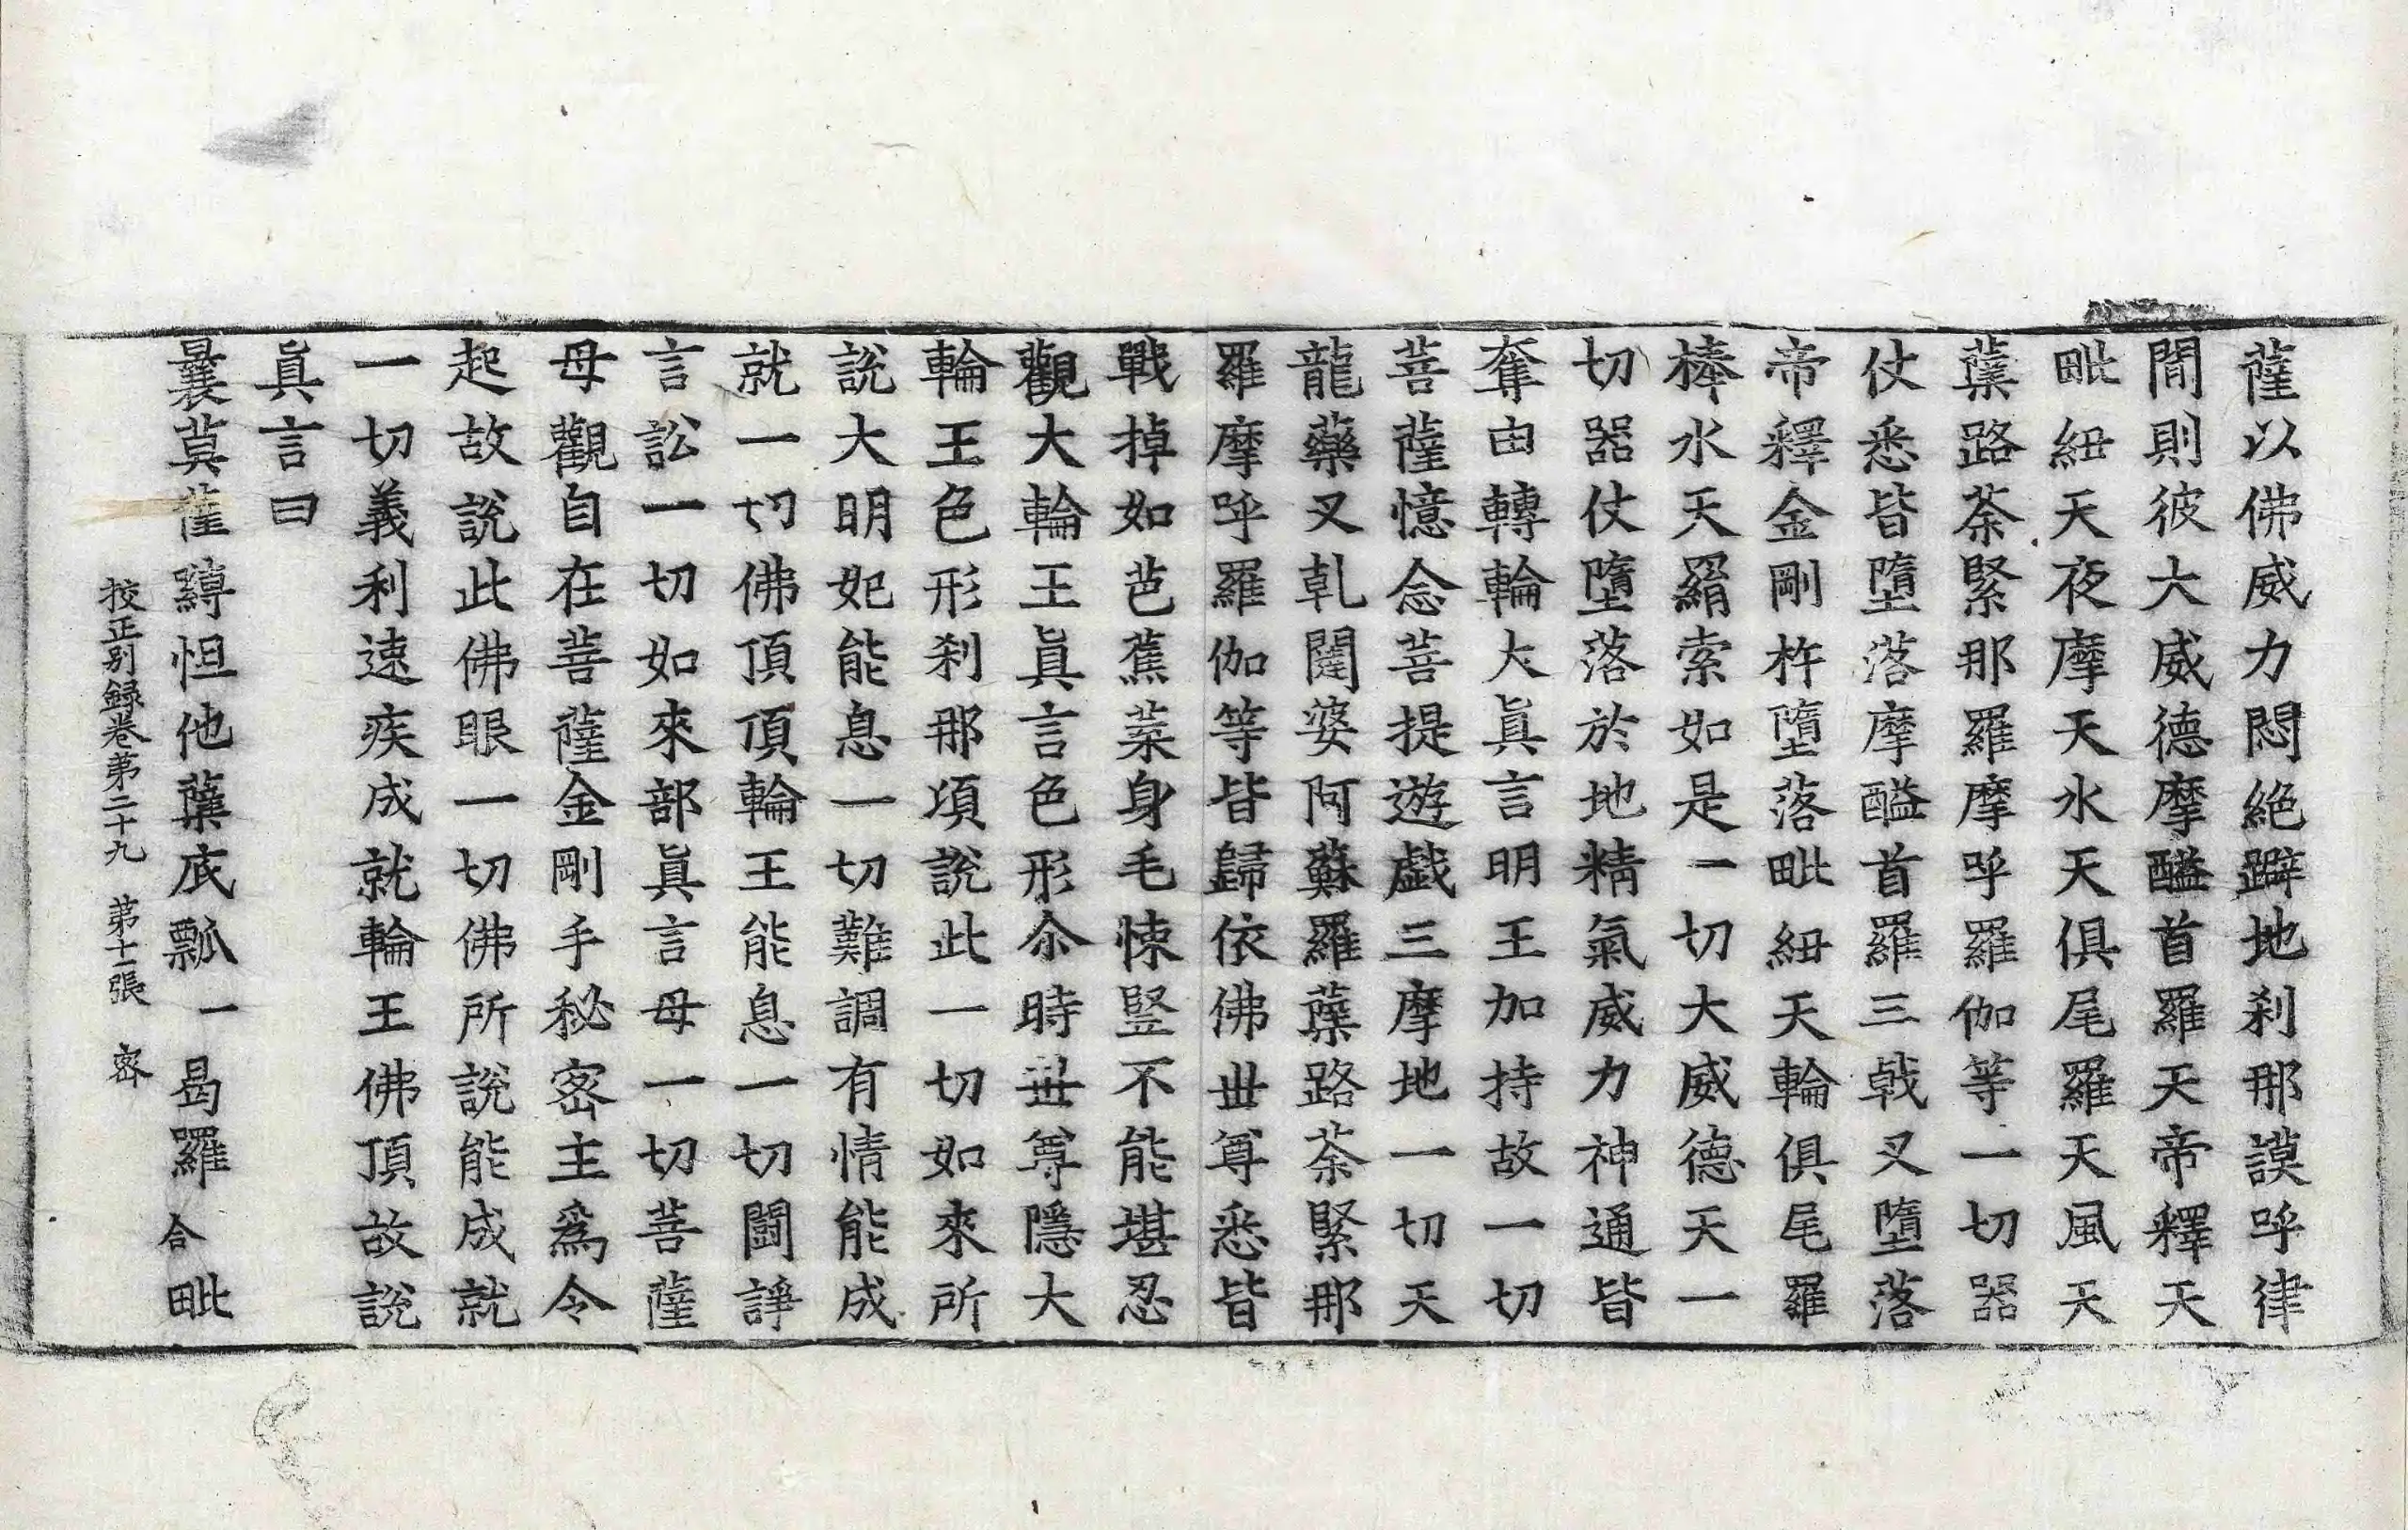 薩以佛威力悶絶躃地刹那謨呼律
閒則彼大威德摩醯首羅天帝釋天
毗紐天夜摩天水天俱尾羅天風天
蘖路荼緊那羅摩呼羅伽等一切器
仗悉皆墮落摩醯首羅三戟叉墮落
帝釋金剛杵墮落毗紐天輪俱尾羅
棒水天羂索如是一切大威德天一
切器仗墮落於地精氣威力神通皆
奪由轉輪大眞言明王加持故一切
菩薩憶念菩提遊戲三摩地一切天
龍藥叉乹闥婆阿蘇羅蘖路荼緊那
羅摩呼羅伽等皆歸依佛世尊悉皆
戰掉如芭蕉葉身毛悚竪不能堪忍
觀大輪王眞言色形尒時世尊隱大
輪王色形刹那頃說此一切如來所
說大明妃能息一切難調有情能成
就一切佛頂頂輪王能息一切鬪諍
言訟一切如來部眞言母一切菩薩
母觀自在菩薩金剛手秘密主爲令
起故說此佛眼一切佛所說能成就
一切義利速疾成就輪王佛頂故說
眞言曰
曩莫薩嚩怛他蘖底瓢一曷羅合毗
挍正別録卷第二十九 第十一張 密